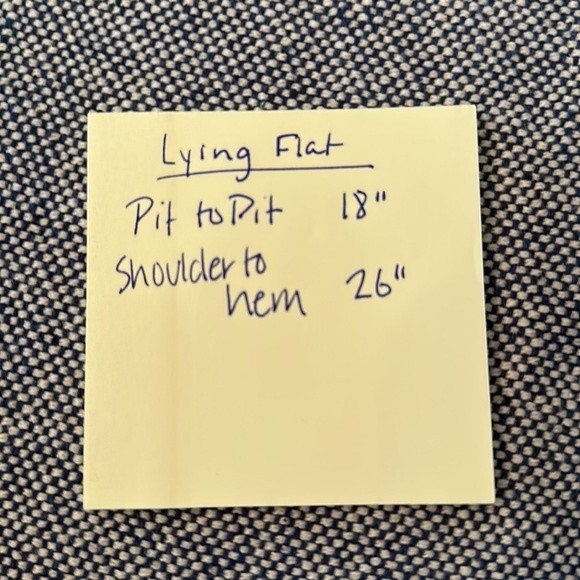 Lying Flat
Pit to Pit 18"
Shoulder to
hem 26"